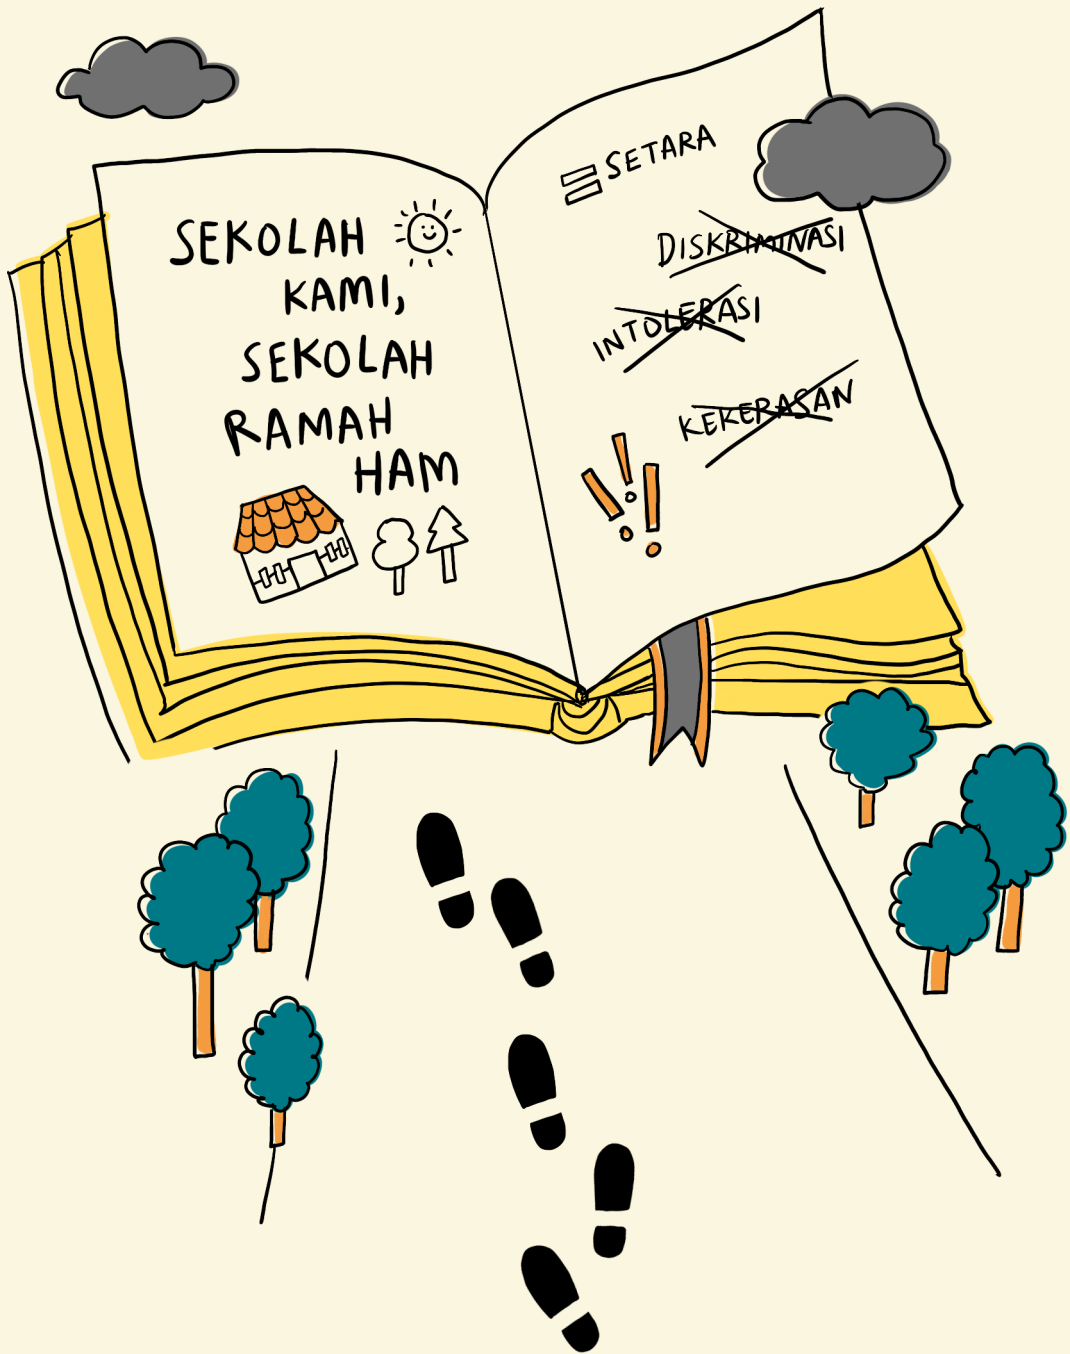 SEKOLAH
KAMI,
SEKOLAH
RAMAH
HAM
= SETARA
DISKRIMINASI
INTOLERASI
KEKERASAN
!!!